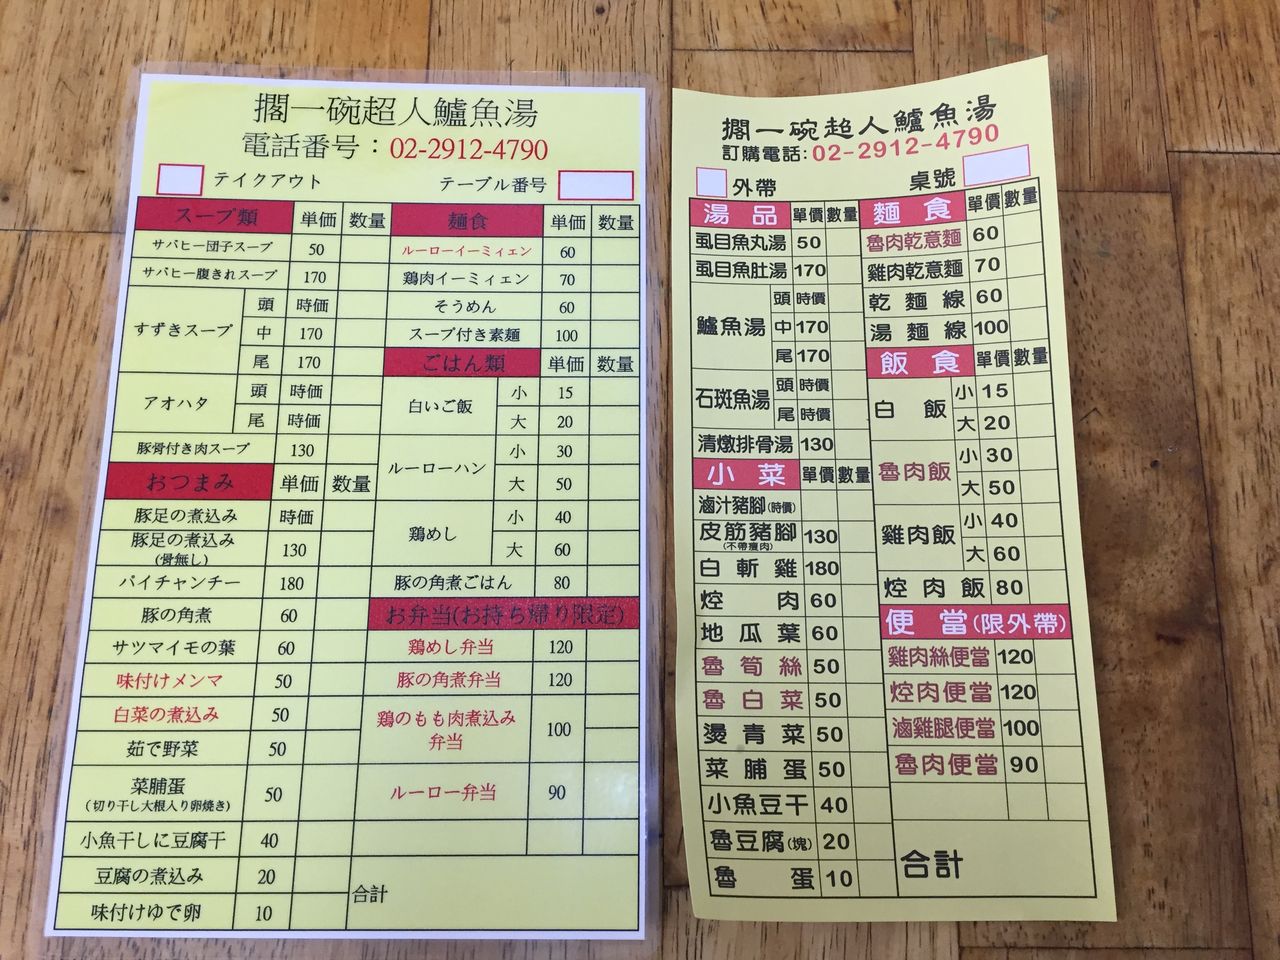 擱一碗超人鱸魚湯
電話番号：02-2912-4790
テイクアウト テーブル番号
スープ類 単価 数量
サバヒー団子スープ 50
サバヒー腹きれスープ 170
すずきスープ 頭 時価
中 170
尾 170
アオハタ 頭 時価
尾 時価
豚骨付き肉スープ 130
おつまみ 単価 数量
豚足の煮込み 時価
豚足の煮込み
(骨無し) 130
バイチャンチー 180
豚の角煮 60
サツマイモの葉 60
味付けメンマ 50
白菜の煮込み 50
茹で野菜 50
菜脯蛋
(切り干し大根入り卵焼き) 50
小魚干しに豆腐干 40
豆腐の煮込み 20
味付けゆで卵 10
麺食 単価 数量
ルーローイーミィェン 60
鶏肉イーミィェン 70
そうめん 60
スープ付き素麺 100
ごはん類 単価 数量
白いご飯 小 15
大 20
ルーローハン 小 30
大 50
鶏めし 小 40
大 60
豚の角煮ごはん 80
お弁当(お持ち帰り限定)
鶏めし弁当 120
豚の角煮弁当 120
鶏のもも肉煮込み
弁当 100
ルーロー弁当 90
合計
擱一碗超人鱸魚湯
訂購電話:02-2912-4790
外帶 桌號
湯品 單價 數量
虱目魚丸湯 50
虱目魚肚湯 170
鱸魚湯 頭 時價
中 170
尾 170
石斑魚湯 頭 時價
尾 時價
清燉排骨湯 130
小菜 單價 數量
滷汁豬腳(時價)
皮筋豬腳
(不帶瘦肉) 130
白斬雞 180
焢肉 60
地瓜葉 60
魯筍絲 50
魯白菜 50
燙青菜 50
菜脯蛋 50
小魚豆干 40
魯豆腐(塊) 20
魯蛋 10
麵食 單價 數量
魯肉乾意麵 60
雞肉乾意麵 70
乾麵線 60
湯麵線 100
飯食 單價 數量
白飯 小 15
大 20
魯肉飯 小 30
大 50
雞肉飯 小 40
大 60
焢肉飯 80
便當(限外帶)
雞肉絲便當 120
焢肉便當 120
滷雞腿便當 100
魯肉便當 90
合計